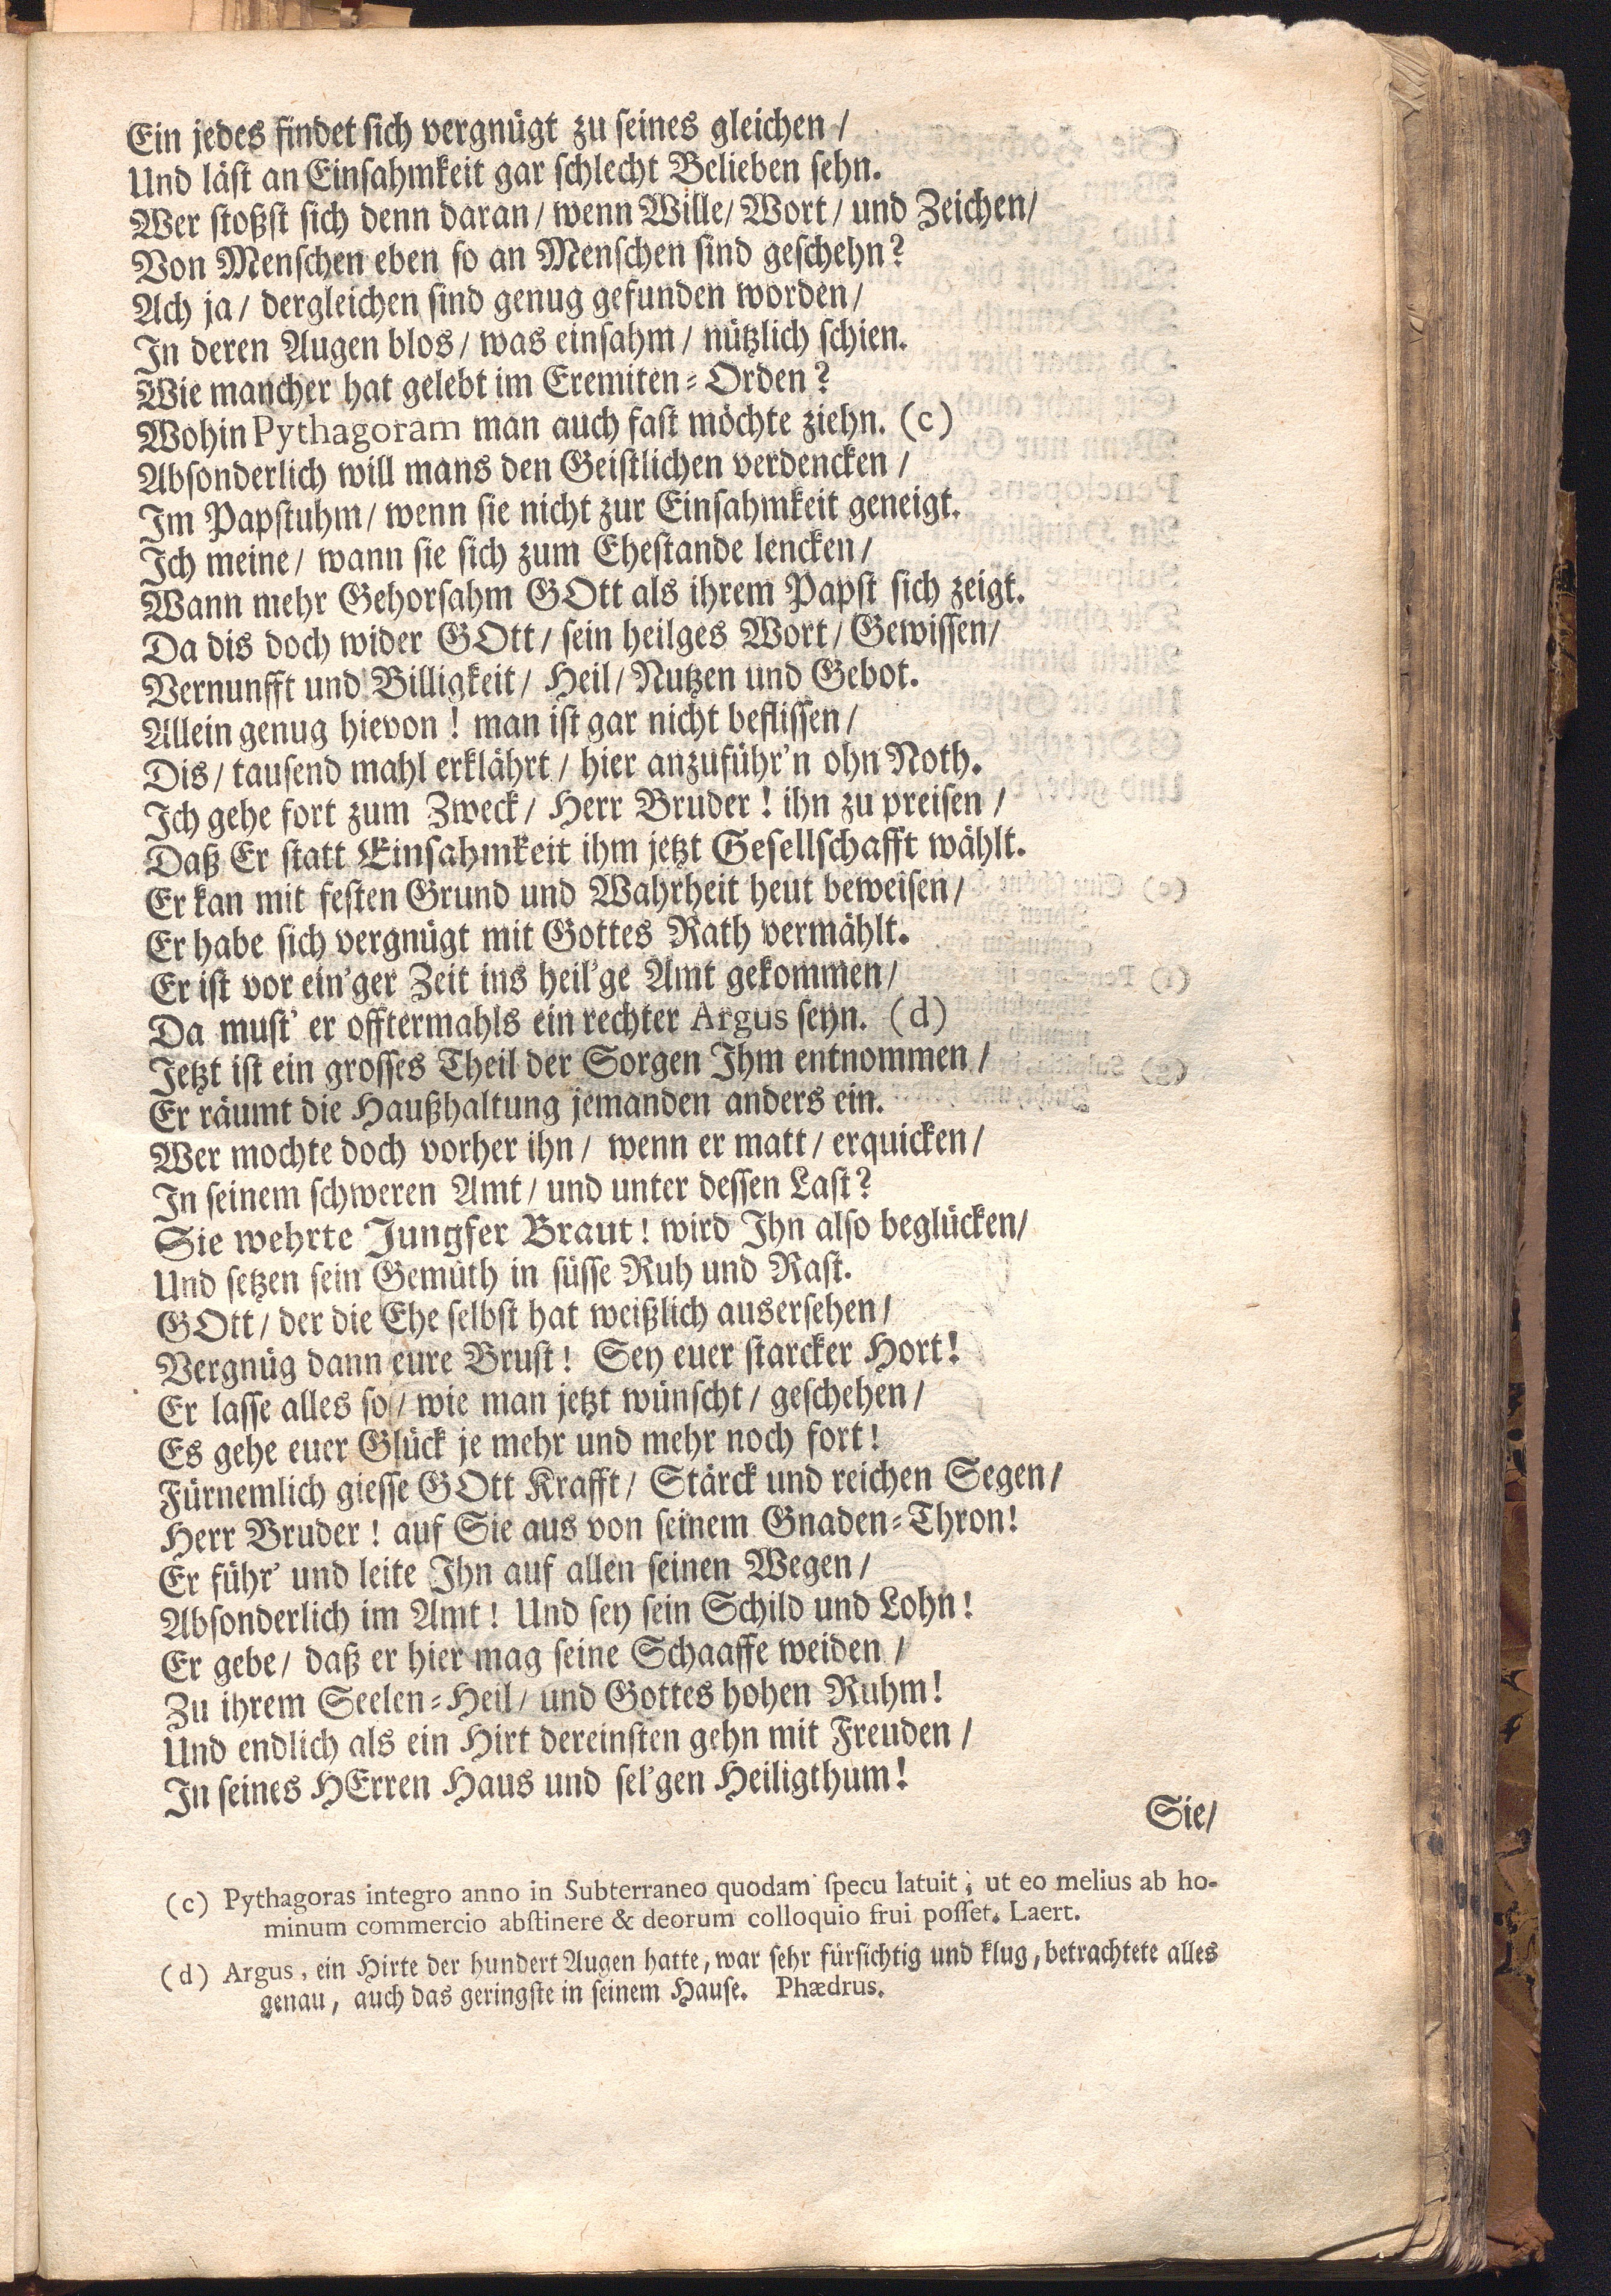 Ein jedes findet sich vergnügt zu seines gleichen /
Und läst an Einsahmkeit gar schlecht Belieben sehn.
Wer stoßst sich denn daran / wenn Wille / Wort / und Zeichen /
Von Menschen eben so an Menschen sind geschehn?
Ach ja / dergleichen sind genug gefunden worden /
In deren Augen blos / was einsahm / nützlich schien.
Wie mancher hat gelebt im Eremiten-Orden?
Wohin Pythagoram man auch fast möchte ziehn. (c)
Absonderlich will mans den Geistlichen verdencken /
Im Papstuhm / wenn sie nicht zur Einsahmkeit geneigt.
Ich meine / wann sie sich zum Ehestande lencken /
Wann mehr Gehorsahm GOtt als ihrem Papst sich zeigt.
Da dis doch wider GOtt / sein heilges Wort / Gewissen /
Vernunfft und Billigkeit / Heil / Nutzen und Gebot.
Allein genug hievon! man ist gar nicht beflissen /
Dis / tausend mahl erklährt / hier anzuführ'n ohn Noth.
Ich gehe fort zum Zweck / Herr Bruder! ihn zu preisen /
Daß Er statt Einsahmkeit ihm jetzt Gesellschafft wählt.
Er kan mit festen Grund und Wahrheit heut beweisen /
Er habe sich vergnügt mit Gottes Rath vermählt.
Er ist vor ein'ger Zeit ins heil'ge Amt gekommen /
Da must' er offtermahls ein rechter Argus seyn. (d)
Jetzt ist ein grosses Theil der Sorgen Ihm entnommen /
Er räumt die Haußhaltung jemanden anders ein.
Wer mochte doch vorher ihn / wenn er matt / erquicken /
In seinem schweren Amt / und unter dessen Last?
Sie wehrte Jungfer Braut! wird Ihn also beglücken /
Und setzen sein Gemüth in süsse Ruh und Rast.
GOtt / der die Ehe selbst hat weißlich ausersehen /
Vergnüg dann eure Brust! Sey euer starcker Hort!
Er lasse alles so / wie man jetzt wünscht / geschehen /
Es gehe euer Glück je mehr und mehr noch fort!
Fürnemlich giesse GOtt Krafft / Stärck und reichen Segen /
Herr Bruder! auf Sie aus von seinem Gnaden-Thron!
Er führ' und leite Ihn auf allen seinen Wegen /
Absonderlich im Amt! Und sey sein Schild und Lohn!
Er gebe / daß er hier mag seine Schaaffe weiden /
Zu ihrem Seelen-Heil / und Gottes hohen Ruhm!
Und endlich als ein Hirt dereinsten gehn mit Freuden /
In seines HErren Haus und sel'gen Heiligthum!
Sie /
(c) Pythagoras integro anno in Subterraneo quodam specu latuit; ut eo melius ab ho-
minum commercio abstinere & deorum colloquio frui posset. Laert.
(d) Argus, ein Hirte der hundert Augen hatte, war sehr fürsichtig und klug, betrachtete alles
genau, auch das geringste in seinem Hause. Phædrus.